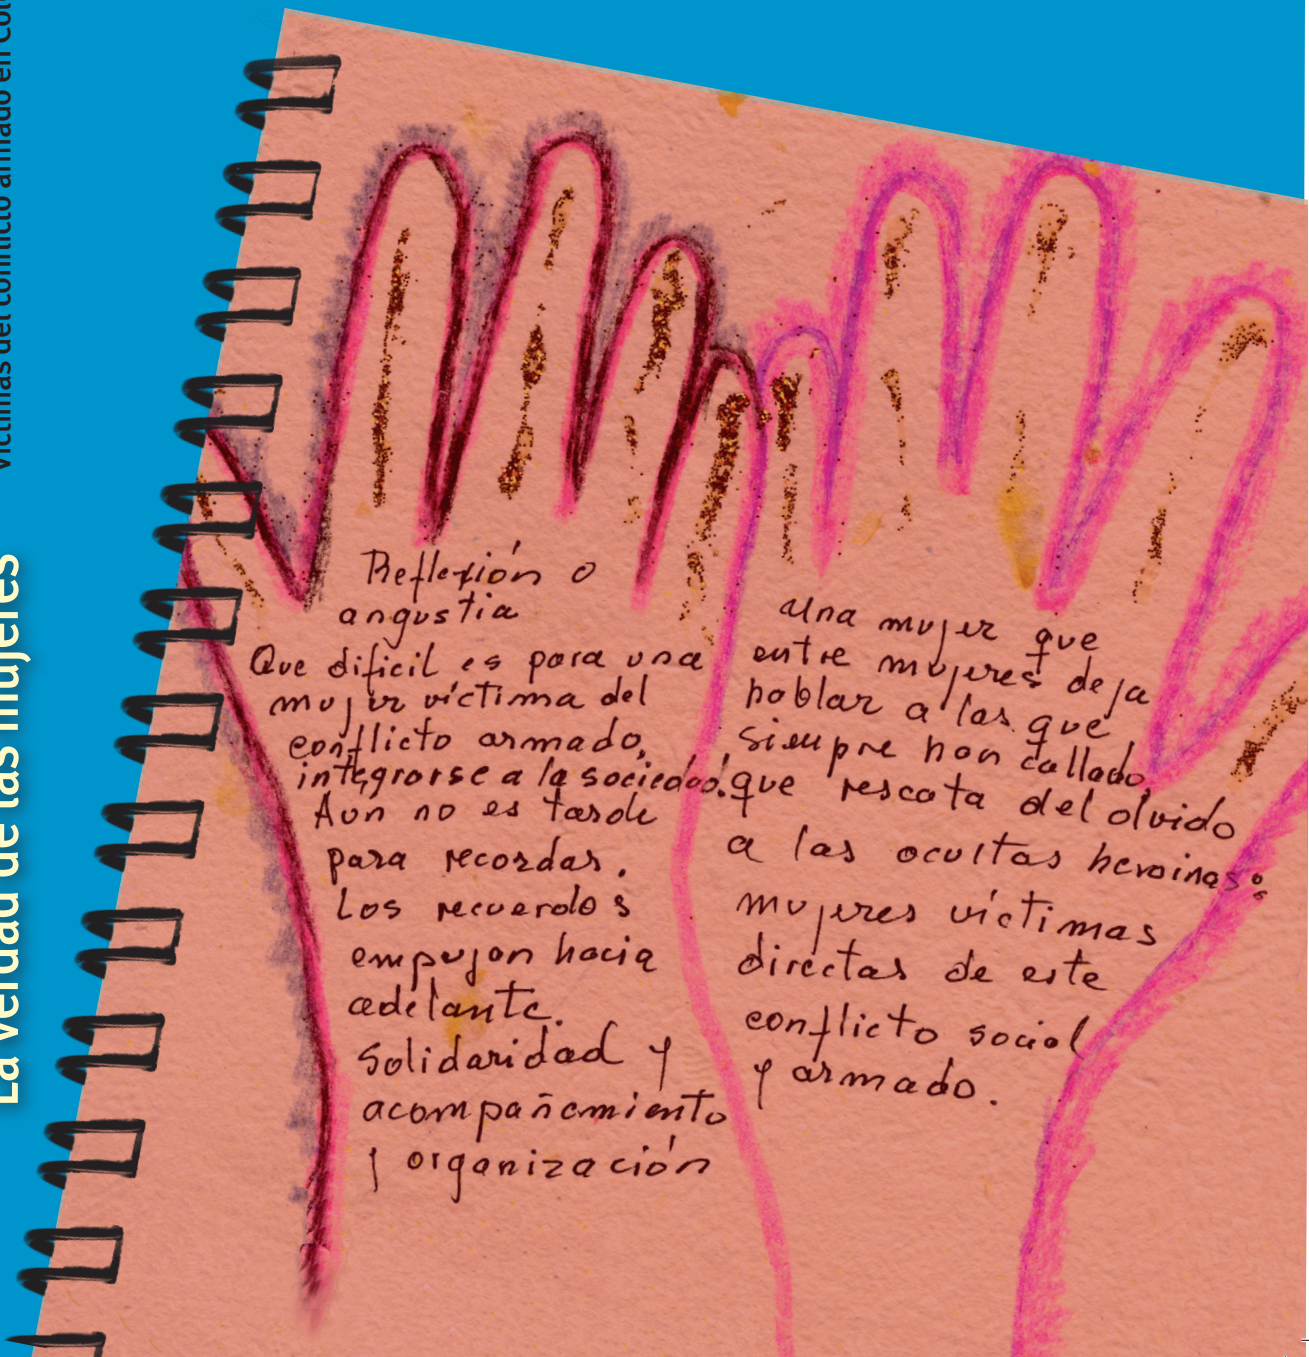 Víctimas del conflicto armado en
La verdad de las mujeres
Reflexión o
angustia
Que dificil es para una
mujer víctima del
conflicto armado,
integrarse a la sociedad.
Aun no es tarde
para recordar.
Los recuerdos
empujan hacia
adelante.
Solidaridad y
acompañamiento
y organización
una mujer que
entre mujeres deja
hablar a las que
siempre han callado,
que rescata del olvido
a las ocultas heroinas:
mujeres víctimas
directas de este
conflicto social
y armado.